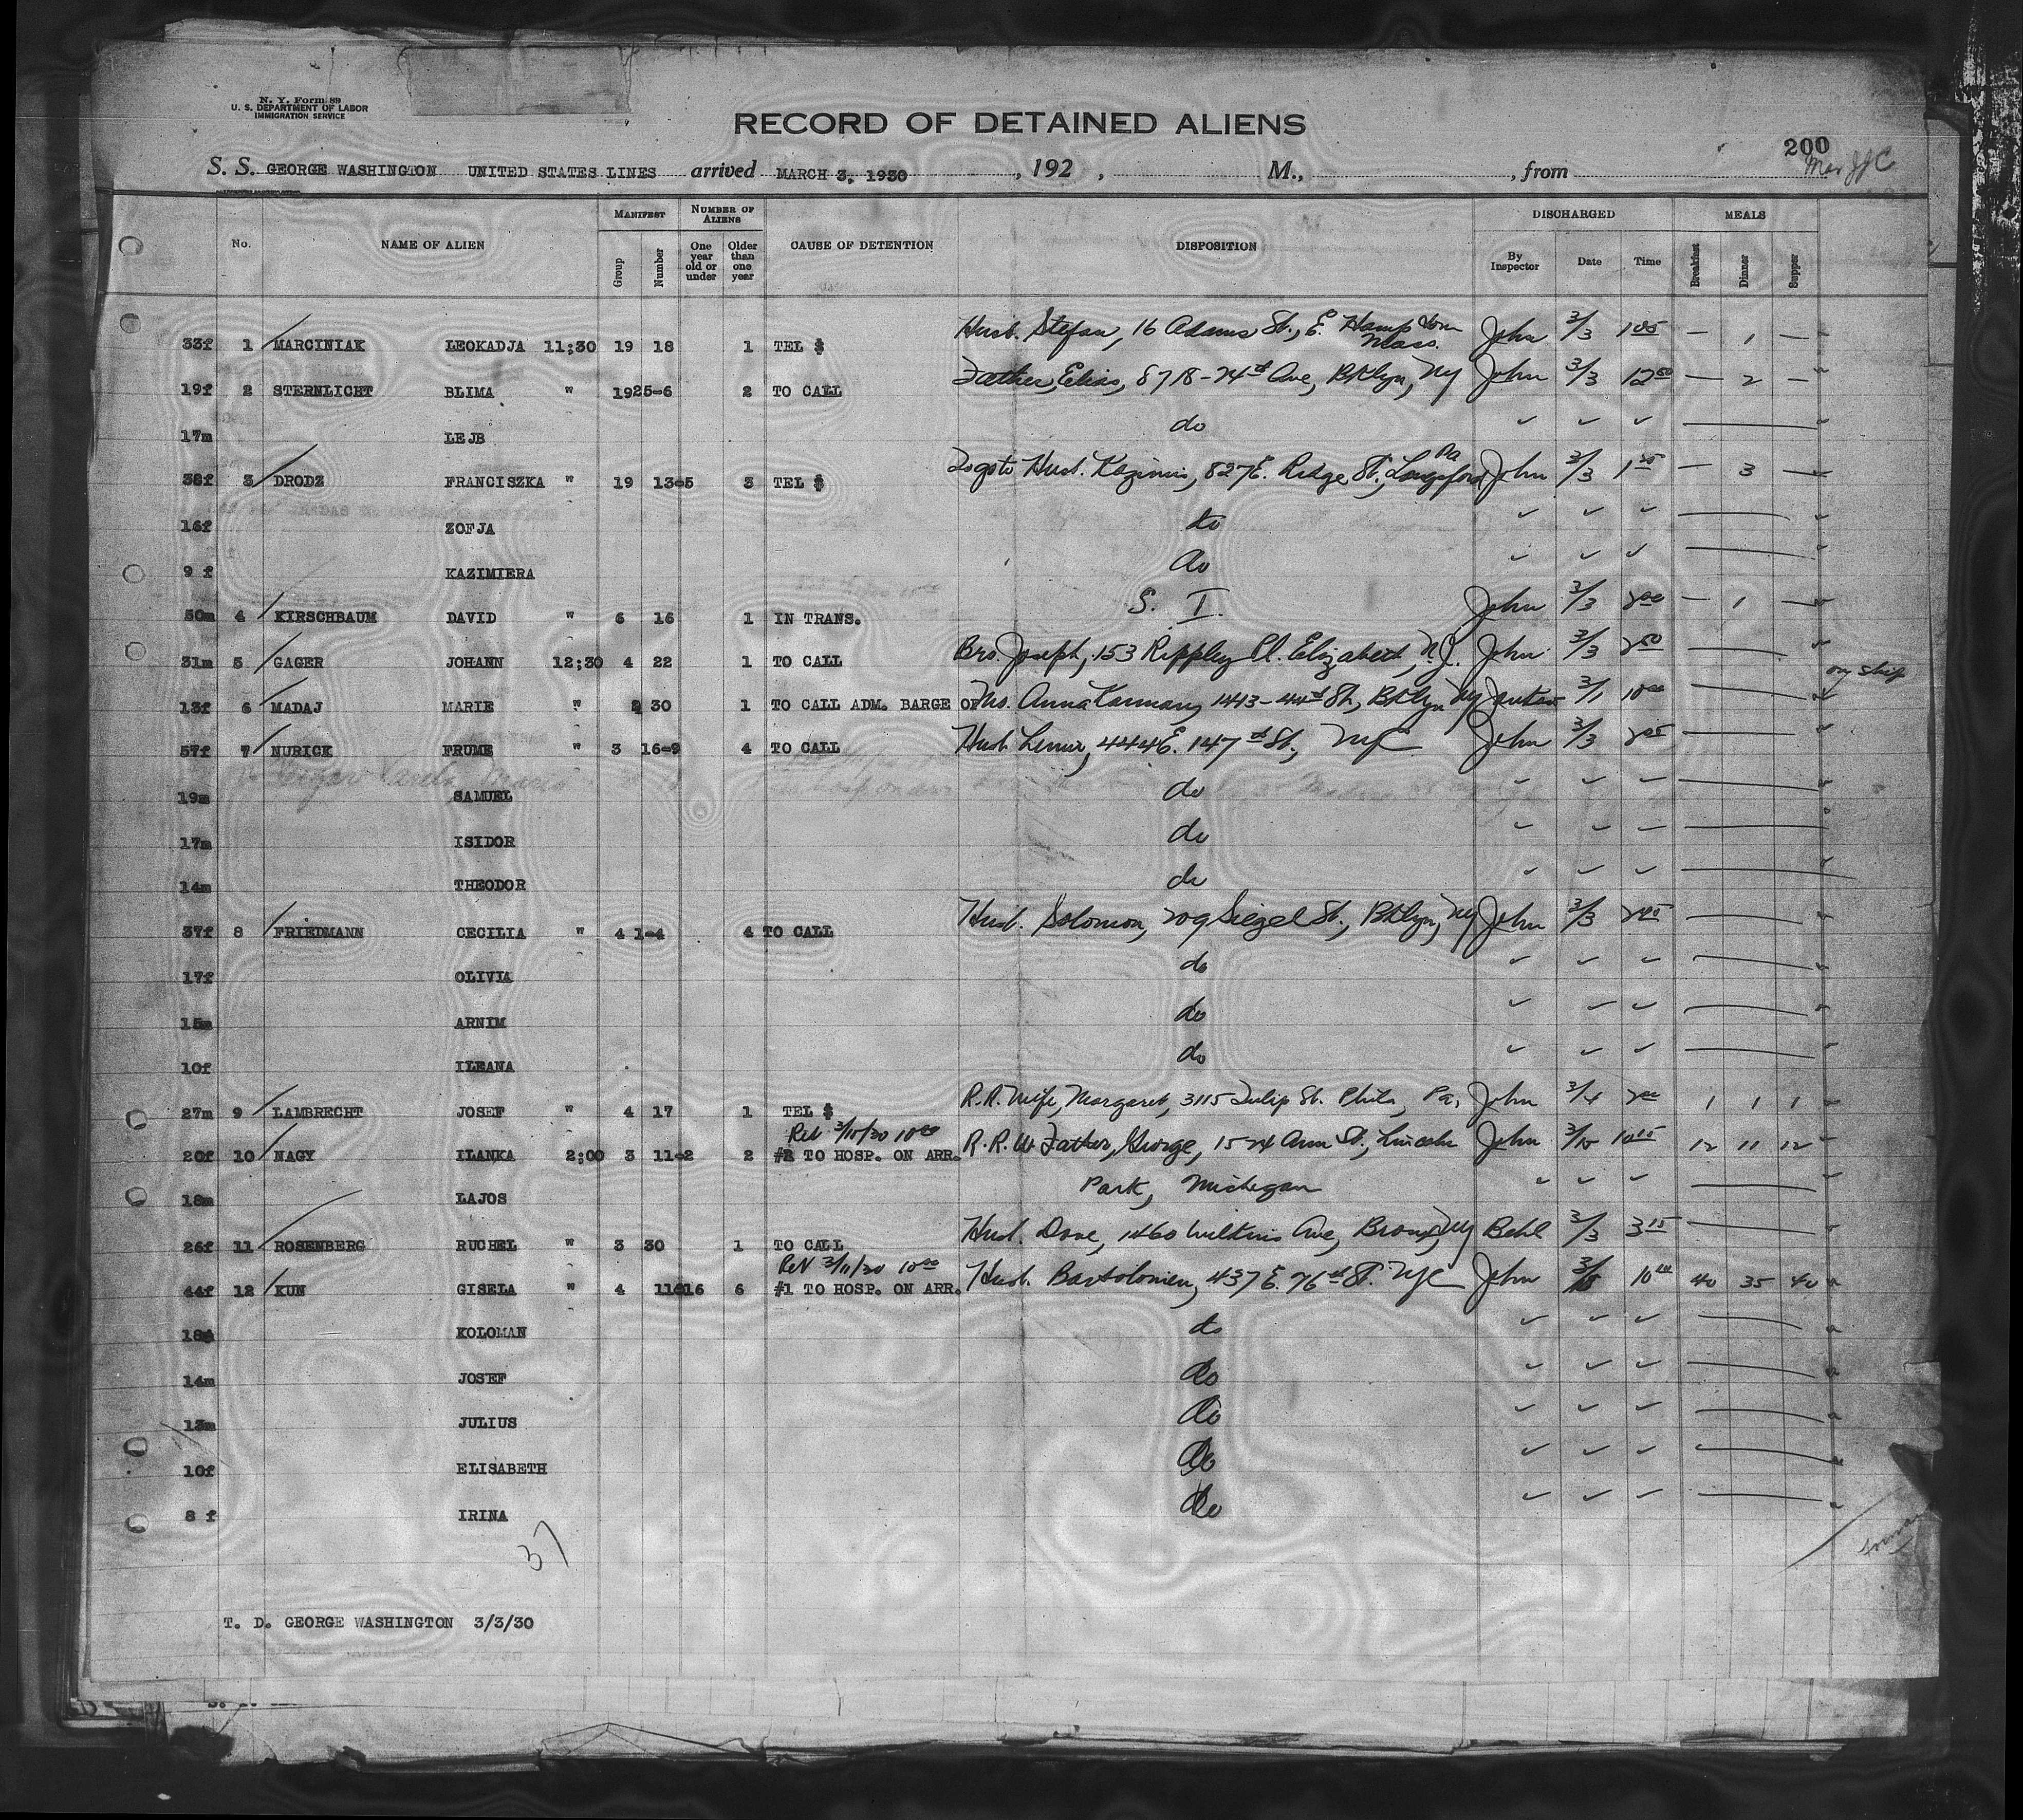 N. Y. Form 89
U. S. DEPARTMENT OF LABOR
IMMIGRATION SERVICE
RECORD OF DETAINED ALIENS
200
S. S. GEORGE WASHINGTON UNITED STATES LINES arrived MARCH 3, 1930, 192 , M., , from
No. NAME OF ALIEN MANIFEST Group Number NUMBER OF ALIENS One year old or under Older than one year CAUSE OF DETENTION DISPOSITION DISCHARGED By Inspector Date Time MEALS Breakfast Dinner Supper
33f 1 MARCINIAK LEOKADJA 11;30 19 18 1 TEL $ Husb. Stefan, 16 Adams St., E. Hampton Mass. John 3/3 1 05 — 1 —
19f 2 STERNLICHT BLIMA " 19 25-6 2 TO CALL Father, Elias, 8718-24th Ave, Bklyn, NY John 3/3 12 50 — 2 —
17m LEJB do
38f 3 DRODZ FRANCISZKA " 19 13-5 3 TEL $ Husb. Kazimir, 827 E. Ridge St., Pa John 3/3 — 3 —
16f ZOFJA do
9 f KAZIMIERA do
50m 4 KIRSCHBAUM DAVID " 6 16 1 IN TRANS. S. I. John 3/3 2 00 — 1 —
31m 5 GAGER JOHANN 12;30 4 22 1 TO CALL Bro. Joseph, 153 Rippley Pl. Elizabeth, N.J. John 3/3 2 50
on ship
13f 6 MADAJ MARIE " 30 1 TO CALL ADM. BARGE OF Anna 1443-44th St., Bklyn NY 3/1 10 00
57f 7 NURICK FRUME " 3 16-9 4 TO CALL Husb. 444 E. 147th St., NYC John 3/3 2 05
19m SAMUEL do
17m ISIDOR do
14m THEODOR do
37f 8 FRIEDMANN CECILIA " 4 1-4 4 TO CALL Husb. Solomon, 209 Siegel St., Bklyn, NY John 3/3 2 45
17f OLIVIA do
15m ARNIM do
10f ILEANA do
27m 9 LAMBRECHT JOSEF " 4 17 1 TEL $ R.R. Wife, Margaret, 3115 Tulip St. Phila, Pa, John 3/4 2 00 1 1 1
Rel 3/15/30 10 00
20f 10 NAGY ILANKA 2;00 3 11-2 2 #2 TO HOSP. ON ARR. R.R. W Father, George, 1524 Ann St., Lincoln John 3/15 10 15 12 11 12
18m LAJOS Park, Michigan
26f 11 ROSENBERG RUCHEL " 3 30 1 TO CALL Husb. Dove, 1460 Wilkins Ave, Bronx, NY Behl 3/3 3 15
Rel 3/11/30 10 00
44f 12 KUN GISELA " 4 11-16 6 #1 TO HOSP. ON ARR. Husb. Bartolomien, 437 E. 76th St. NYC John 40 35 40
18m KOLOMAN do
14m JOSEF do
13m JULIUS do
10f ELISABETH do
8 f IRINA do
37
T. D. GEORGE WASHINGTON 3/3/30